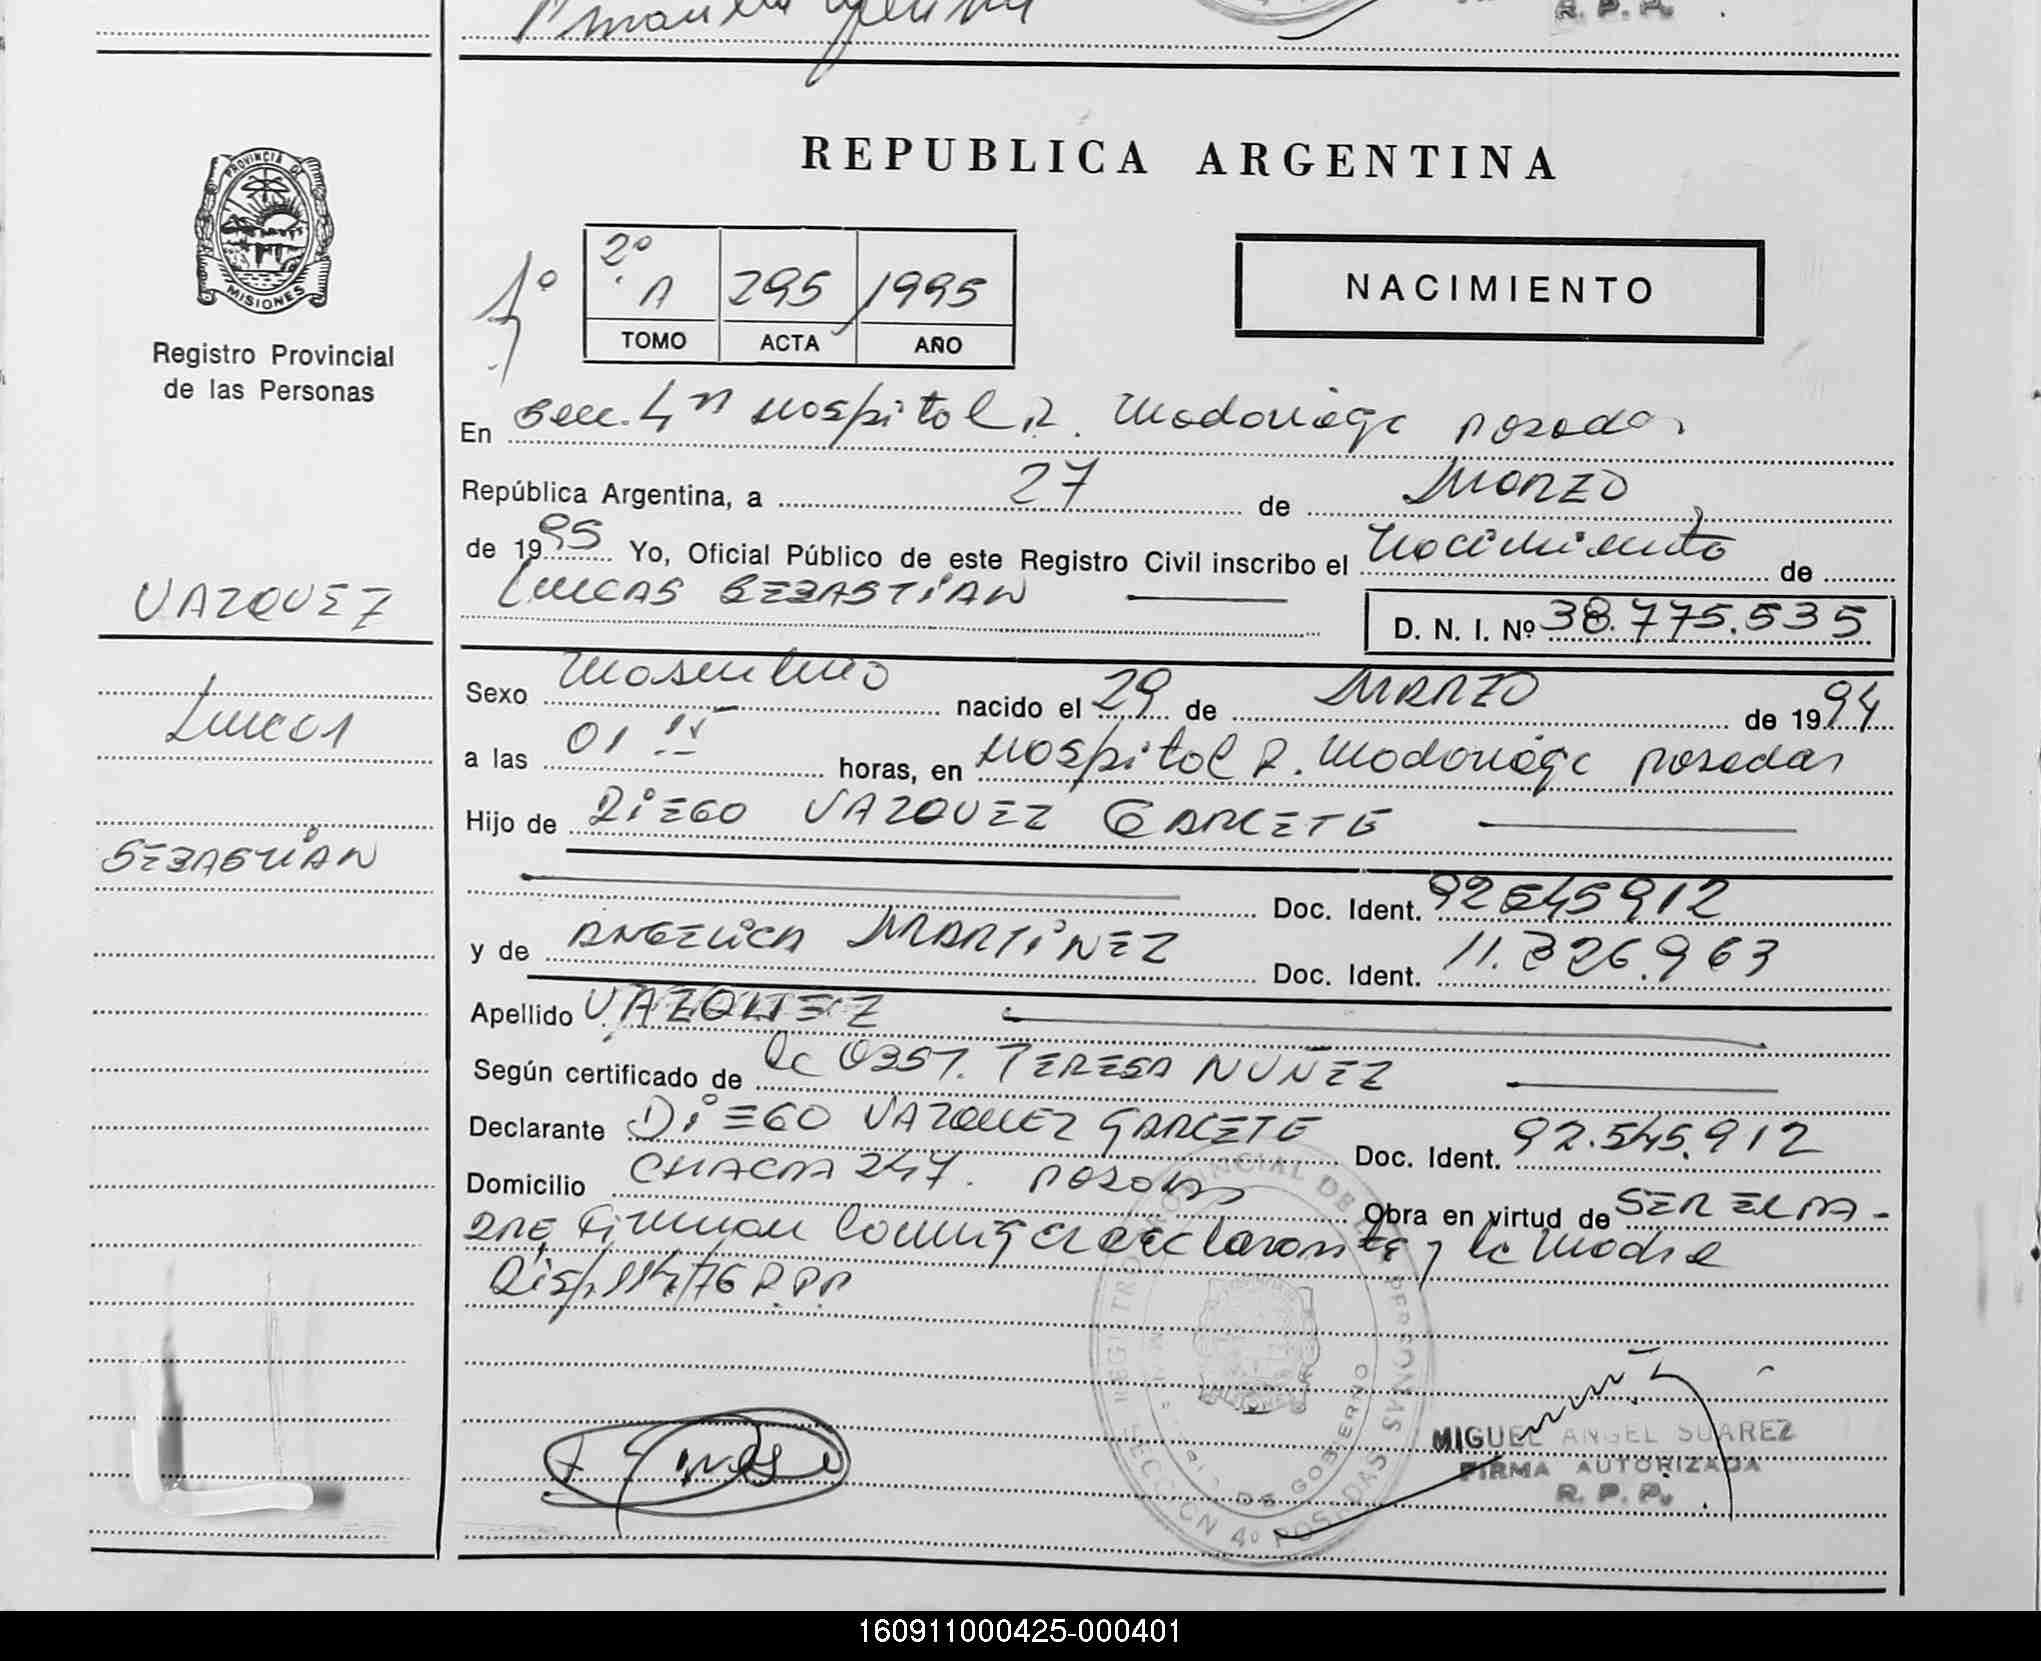 R. P. P.
PROVINCIA DE
MISIONES
Registro Provincial
de las Personas
VAZQUEZ
Lucas
SEBASTIAN
REPUBLICA ARGENTINA
1º
2º A 295 1995
TOMO ACTA AÑO
NACIMIENTO
En Secc. 4ª Hospital R. Madariaga Posadas
República Argentina, a 27 de MARZO
de 1995 Yo, Oficial Público de este Registro Civil inscribo el Nacimiento de
LUCAS SEBASTIAN
D. N. I. Nº 38.775.535
Sexo Masculino nacido el 29 de MARZO de 1994
a las 01 15 horas, en Hospital R. Madariaga Posadas
Hijo de DIEGO VAZQUEZ GARCETE
Doc. Ident. 92545912
y de ANGELICA MARTINEZ Doc. Ident. 11.326.963
Apellido VAZQUEZ
Según certificado de la OBST. TERESA NUÑEZ
Declarante DIEGO VAZQUEZ GARCETE Doc. Ident. 92.545.912
Domicilio CHACRA 247. Posadas Obra en virtud de SER EL PA-
DRE, Firman conmigo el declarante y la madre
Disp. 114/76 R.P.P.
REGISTRO PROVINCIAL DE LAS PERSONAS
DE GOBIERNO
SECCION 4º POSADAS
MIGUEL ANGEL SUAREZ
FIRMA AUTORIZADA
R. P. P.
160911000425-000401